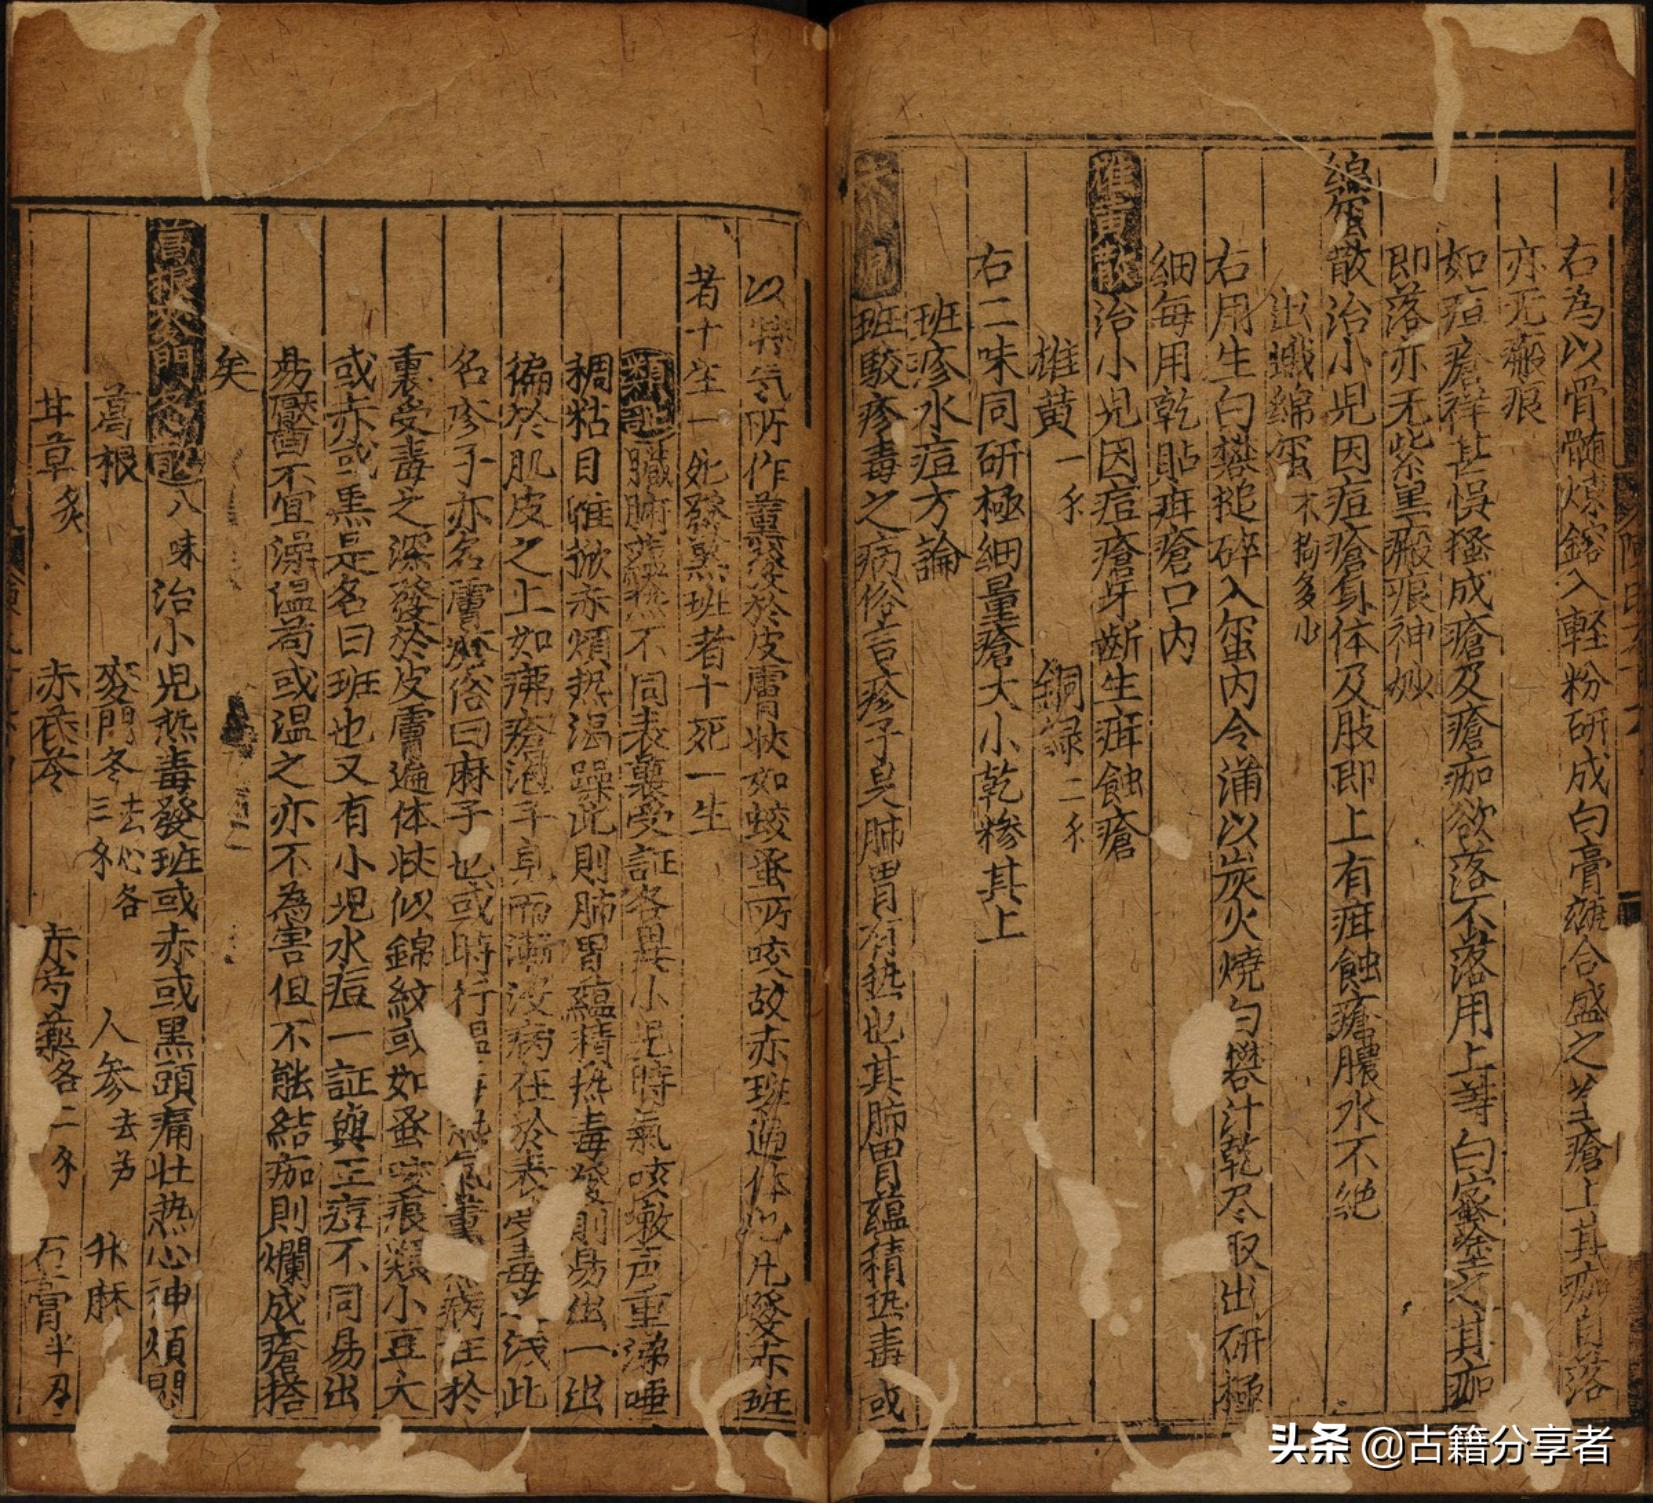 右為以骨髓煉鎔入輕粉研成白膏磁合盛之塗瘡上其痂自落
亦无瘢痕
如痘瘡痒甚悞搔成瘡及瘡痂欲落不落用上等白蜜塗之其痂
即落亦无紫黑瘢痕神妙
綿蛍散治小児因痘瘡身体及肢節上有疳蝕瘡膿水不絶
出蛾綿蛍不拘多少
右用生白礬搥碎入蛍内令滿以炭火燒白礬汁乾尽取出研極
細每用乾貼疳瘡口内
雄黄散治小児因痘瘡牙齗生疳蝕瘡
雄黄一錢 銅緑二錢
右二味同研極細量瘡大小乾糝其上
班疹水痘方論
班駮疹毒之病俗言疹子是肺胃有热也其肺胃蘊積热毒或
以時気所作薰發於皮膚状如蚊蚤所咬故赤班遍体也凡發赤班
者十生一死發黑班者十死一生
臟腑蘊热不同表裏受証各異小児時氣咳嗽声重涕唾
稠粘目睢掀赤煩热渴躁此則肺胃蘊積热毒發則易出一出
徧於肌皮之上如痱瘡泡子皃而漸没病在於表受毒之浅此
名疹子亦名膚疹俗曰麻子也或時行温 氣薰 病在於
裏受毒之深發於皮膚遍体状似錦紋或如蚤咬痕類小豆大
或赤或黑是名曰班也又有小児水痘一証與正痘不同易出
易靨不宜澡温苟或温之亦不為害但不能結痂則爛成瘡搭
矣
葛根麥門冬湯八味治小児热毒發班或赤或黑頭痛壮热心神煩悶
葛根 麥門冬去心各三錢 人參去芦 升麻
甘草炙 赤茯苓 赤芍藥各二錢 石膏半刄
头条 @古籍分享者